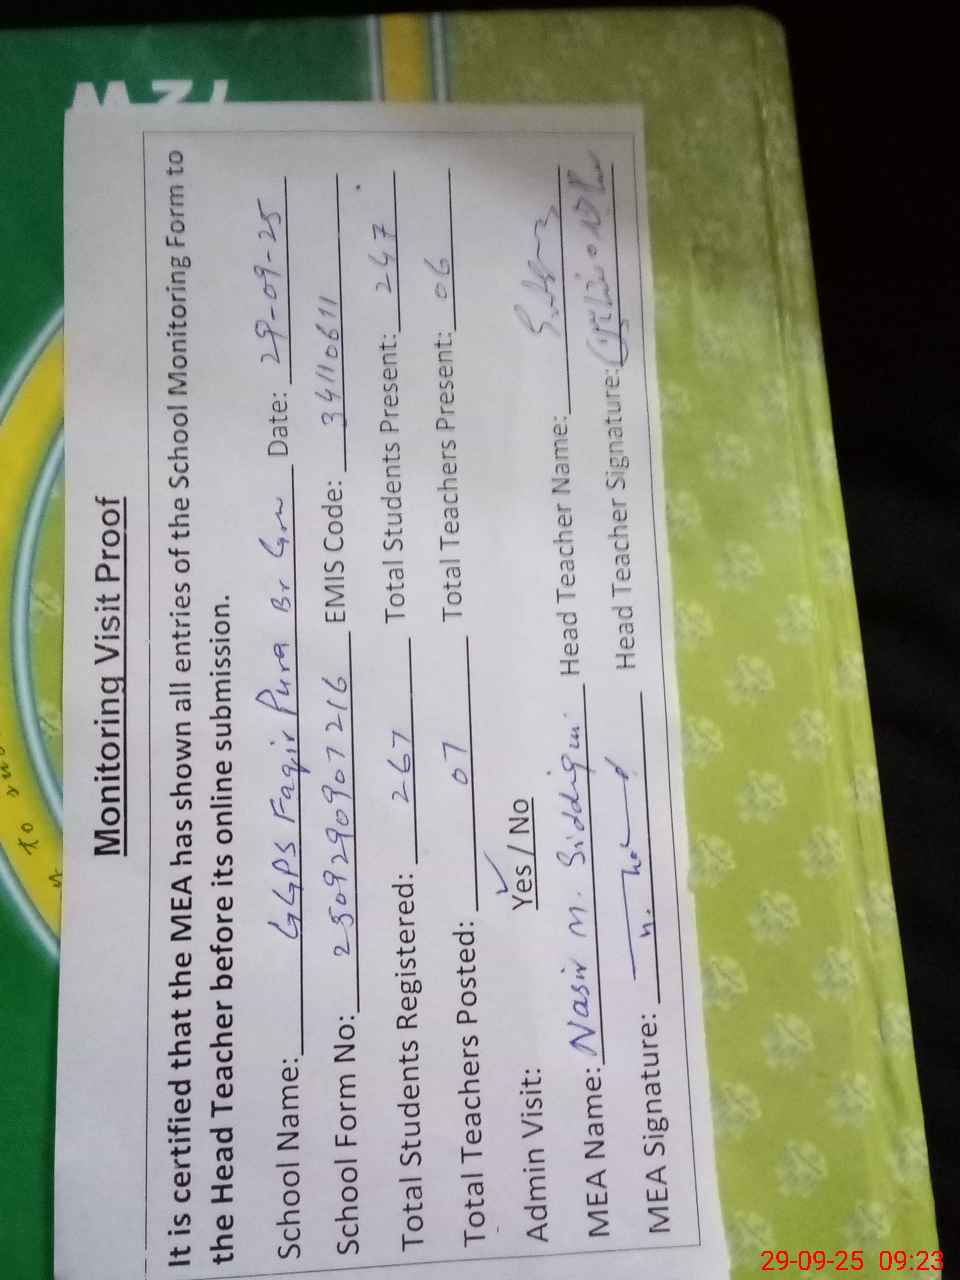 Monitoring Visit Proof
It is certified that the MEA has shown all entries of the School Monitoring Form to
the Head Teacher before its online submission.
School Name: GGPS Faqir Pura Br Grw Date: 29-09-25
School Form No: 2509290907216 EMIS Code: 34110611
Total Students Registered: 267 Total Students Present: 247
Total Teachers Posted: 07 Total Teachers Present: 06
Admin Visit: Yes / No
MEA Name: Nasir M. Siddiqui Head Teacher Name:
MEA Signature: Head Teacher Signature:
29-09-25 09:23